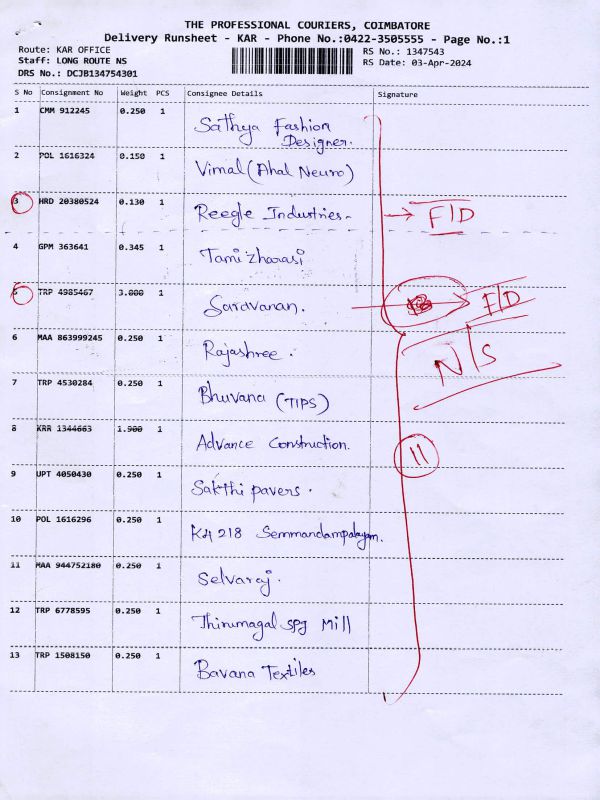 THE PROFESSIONAL COURIERS, COIMBATORE
Delivery Runsheet - KAR - Phone No.:0422-3505555 - Page No.:1
Route: KAR OFFICE
RS No.: 1347543
Staff: LONG ROUTE NS
RS Date: 03-Apr-2024
DRS No.: DCJB134754301
S No Consignment No Weight PCS Consignee Details Signature
1 CMM 912245 0.250 1 Sathya Fashion
Designer.
2 POL 1616324 0.150 1 Vimal (Ahal Neuro)
3 HRD 20380524 0.130 1 Reegle Industries- → F/D
4 GPM 363641 0.345 1 Tamizharasi
5 TRP 4985467 3.000 1 Saravanan. F/D
6 MAA 863999245 0.250 1 Rajashree. N/S
7 TRP 4530284 0.250 1 Bhuvana (TIPS)
8 KRR 1344663 1.900 1 Advance Construction. 11
9 UPT 4050430 0.250 1 Sakthi pavers.
10 POL 1616296 0.250 1 218 Semmandampalayam.
11 MAA 944752180 0.250 1 Selvaraj.
12 TRP 6778595 0.250 1 Thirumagal SPG Mill
13 TRP 1508150 0.250 1 Bavana Textiles